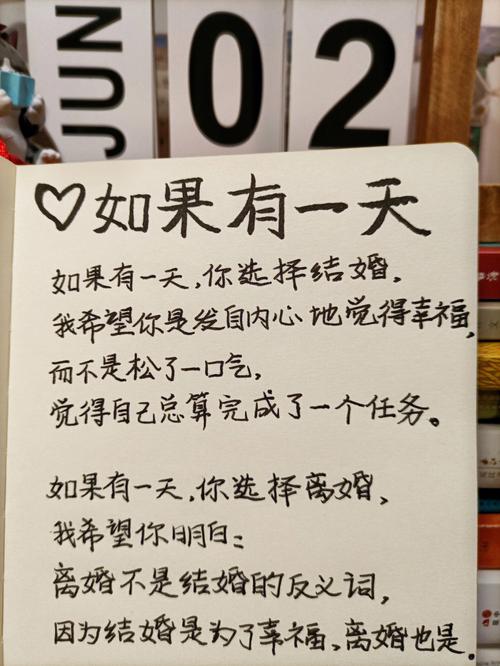 JUN
02
♡如果有一天
如果有一天,你选择结婚,
我希望你是发自内心地觉得幸福,
而不是松了一口气,
觉得自己总算完成了一个任务。
如果有一天,你选择离婚,
我希望你明白:
离婚不是结婚的反义词,
因为结婚是为了幸福,离婚也是。